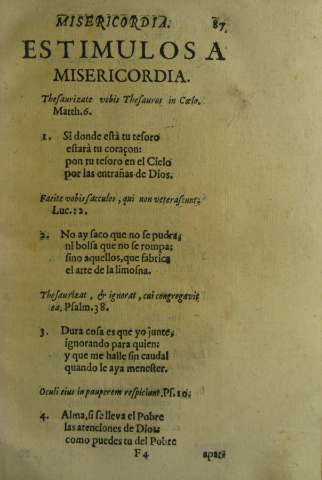 MISERICORDIA. 87
ESTIMULOS A
MISERICORDIA.
Thesaurizate vobis Thesauros in Cœlo.
Matth. 6.
1. Si donde està tu tesoro
estarà tu coraçon:
pon tu tesoro en el Cielo
por las entrañas de Dios.
Facite vobis sacculos, qui non veterascunt;
Luc. 12.
2. No ay saco que no se pudra,
ni bolsa que no se rompa;
sino aquellos, que fabrica
el arte de la limosna.
Thesaurizat, & ignorat, cui congregavit
ea. Psalm. 38.
3. Dura cosa es que yo junte,
ignorando para quien;
y que me halle sin caudal
quando le aya menester.
Oculi eius in pauperem respiciunt. Ps. 10;
4. Alma, si se lleva el Pobre
las atenciones de Dios:
como puedes tu del Pobre
F 4 apar